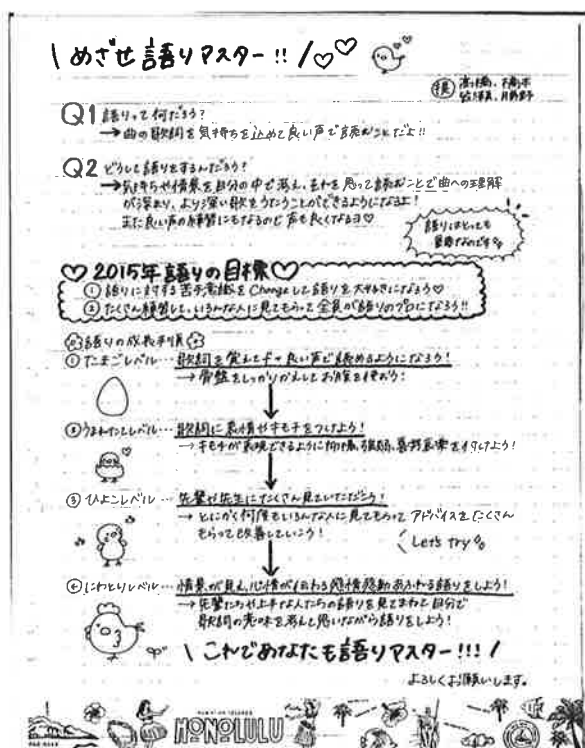 \ めざせ 語りマスター!! /♡♡
Q1 語りって何だろう?
→曲の歌詞を気持ちを込めて良い声で読むことだよ!!
Q2 どうして語りをするんだろう?
→気持ちや情景を自分の中で考え、それを思って読むことで曲への理解
が深まり、より深い歌をうたうことができるようになるよ!
また良い声の練習にもなるので声も良くなるヨ♡
語りはとっても
重要なのです
♡ 2015年 語りの目標 ♡
① 語りに対する苦手意識をChangeして語りを大好きになろう♡
② たくさん練習して、いろんな人に見てもらって全員が語りのプロになろう!!
語りの成長手順
①たまごレベル…歌詞を覚えてまず良い声で読めるようになろう!
→骨盤をしっかりかえしてお腹を使おう!
②うまれたてレベル…歌詞に表情やキモチをつけよう!
→キモチが表現できるように抑揚、強弱、喜怒哀楽をつけよう!
③ひよこレベル…先輩や先生にたくさん見ていただこう!
→とにかく何度もいろんな人に見てもらってアドバイスをたくさん
もらって改善していこう!
Let's try
④にわとりレベル…情景が見え、心情が伝わる感情感動あふれる語りをしよう!
→先輩たちや上手な人たちの語りを見てまねて自分で
歌詞の意味を考えて思いながら語りをしよう!
\ これであなたも語りマスター!!! /
よろしくお願いします。
HONOLULU